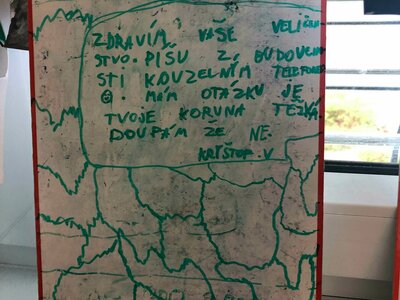 ZDRAVÍM VAŠE VELIČEN
STVO. PÍŠU Z BUDOUCNO
STI KOUZELNÍM TELEFONEM
☺. MÁM OTÁZKU JE
TVOJE KORUNA TĚŽKÁ
DOUFÁM ŽE NE.
KRYŠTOF.V